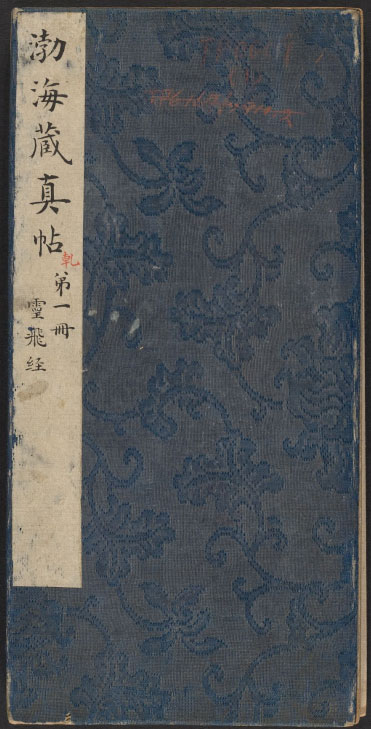 渤海蔵真帖
乾
第一冊
靈飛経